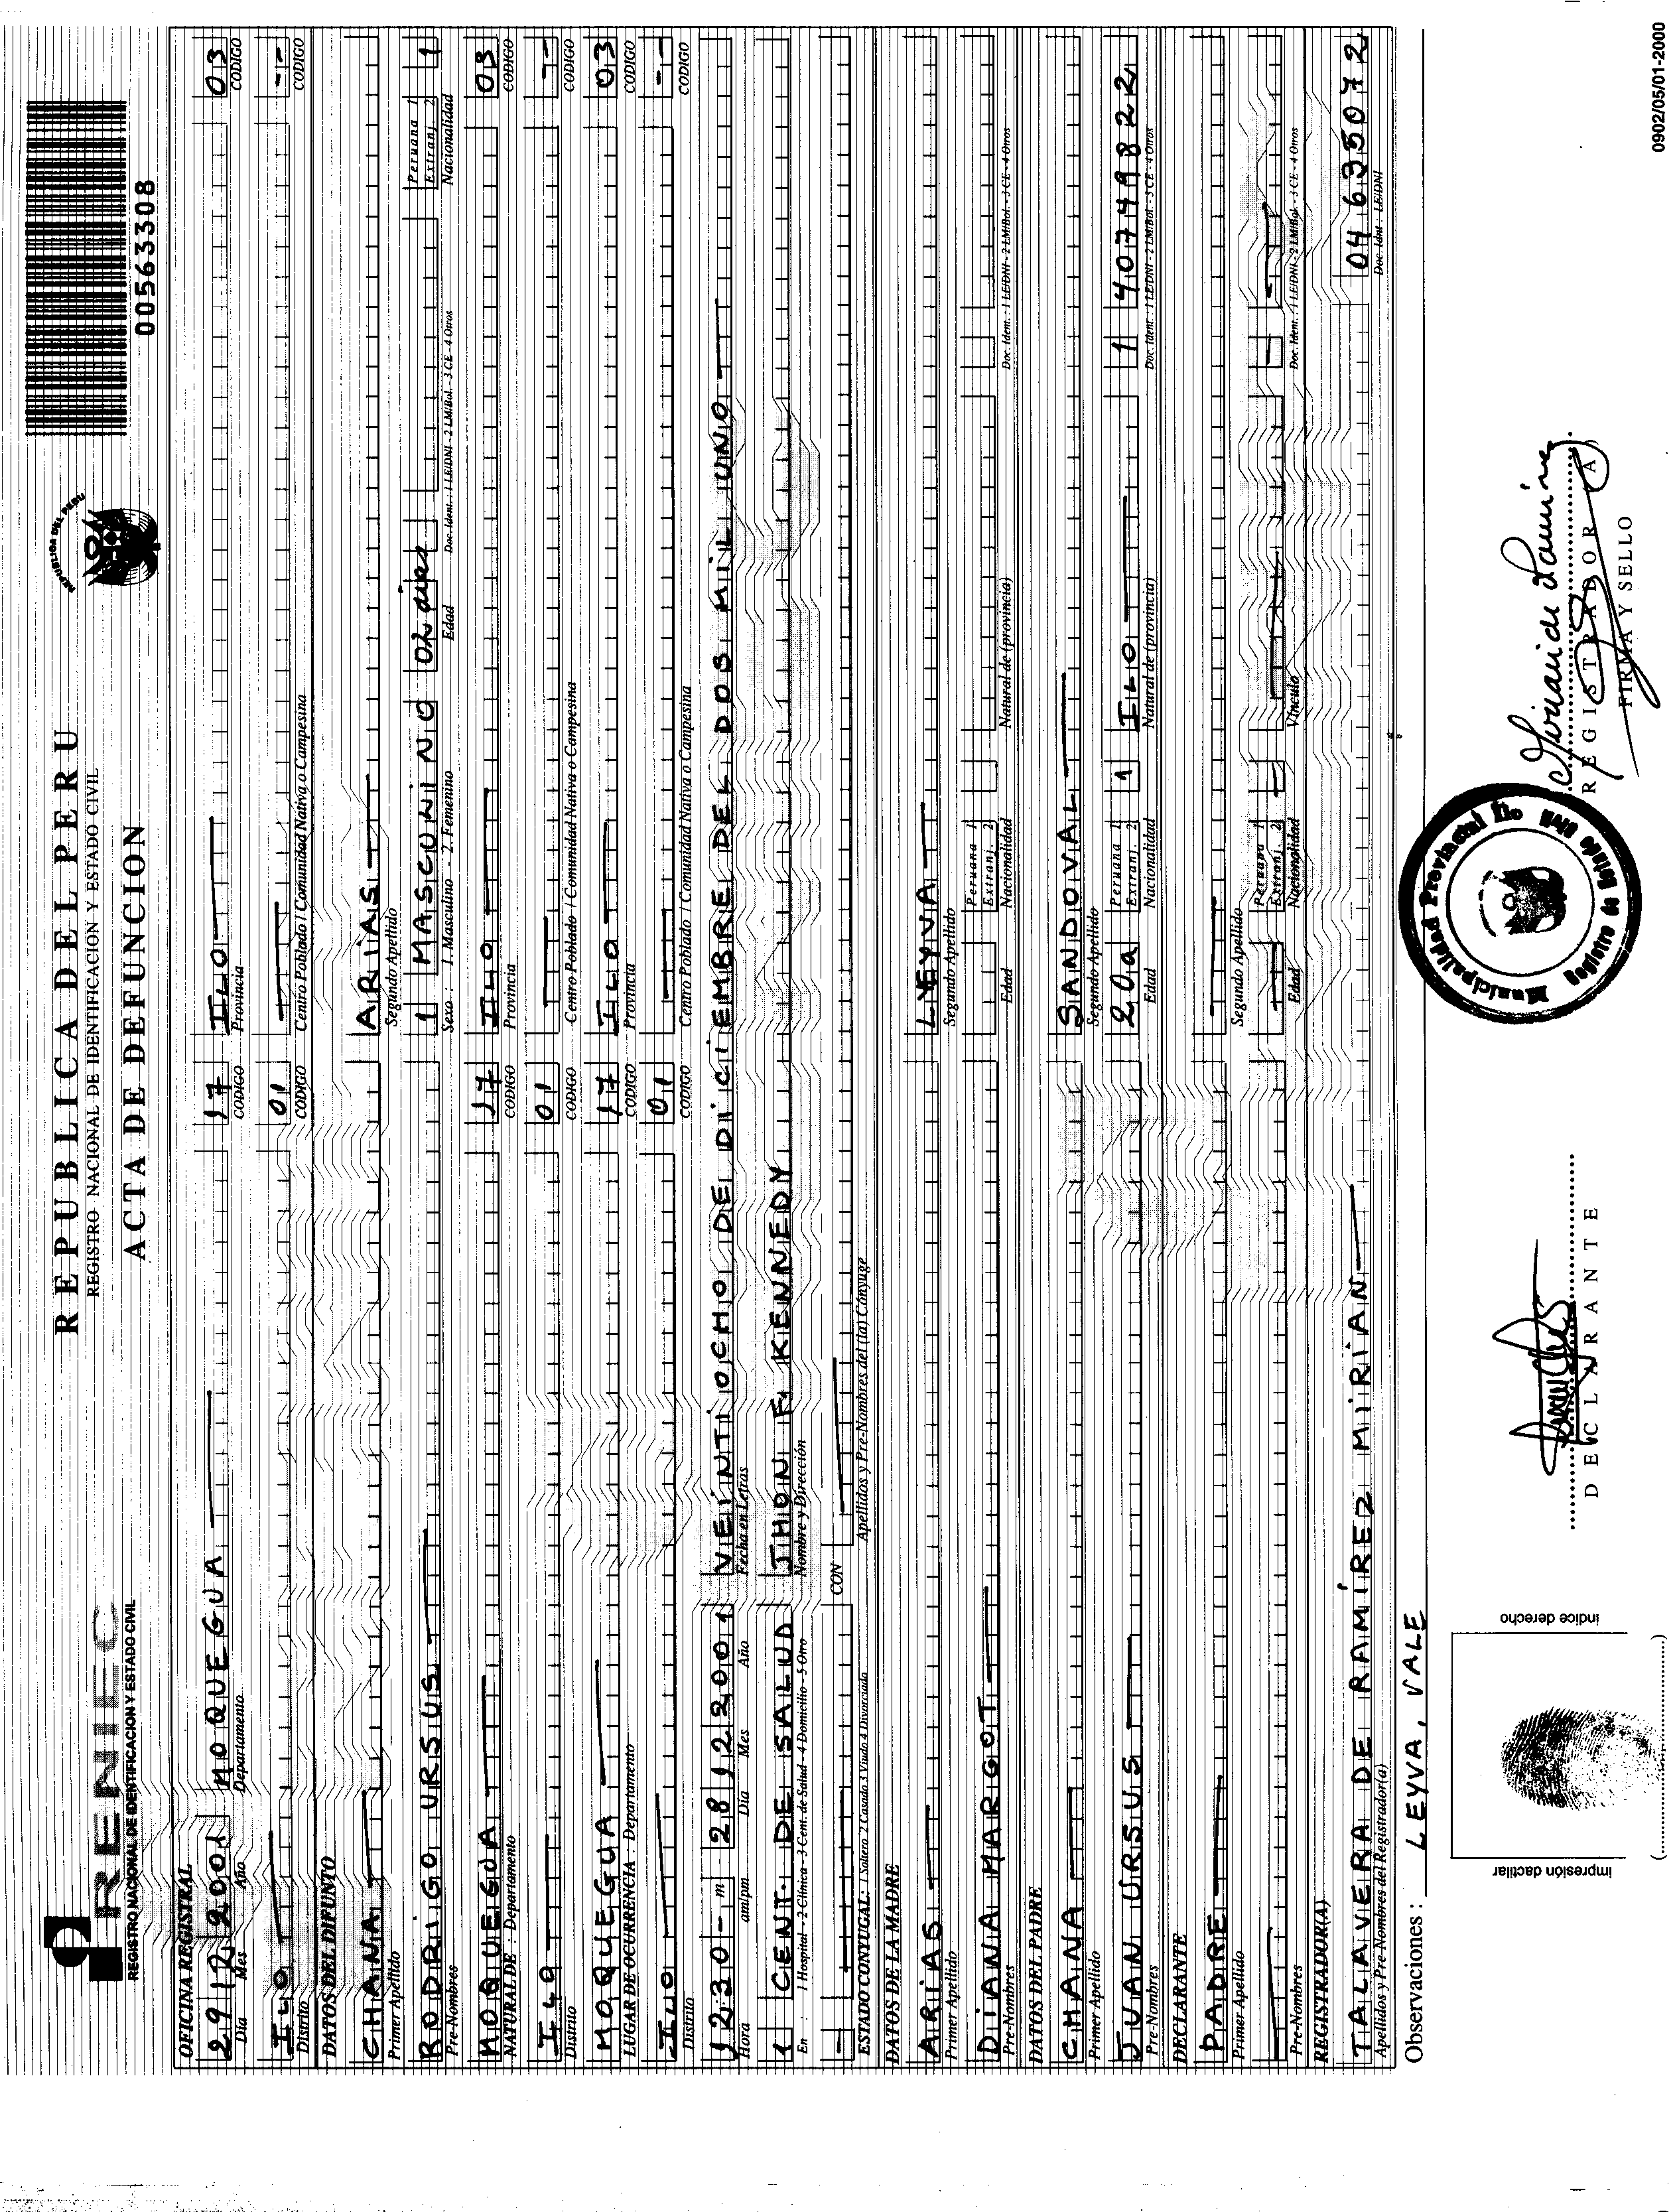 RENIEC
REGISTRO NACIONAL DE IDENTIFICACION Y ESTADO CIVIL
REPUBLICA DEL PERU
REGISTRO NACIONAL DE IDENTIFICACION Y ESTADO CIVIL
ACTA DE DEFUNCION
REPUBLICA DEL PERU
00563308
OFICINA REGISTRAL
29 12 2001 MOQUEGUA 17 ILO 03
Día Mes Año Departamento CODIGO Provincia CODIGO
ILO 01 --
Distrito CODIGO Centro Poblado / Comunidad Nativa o Campesina CODIGO
DATOS DEL DIFUNTO
CHANA ARIAS
Primer Apellido Segundo Apellido
RODRIGO URSUS 1 MASCULINO 02 días Peruana 1 Extranj. 2 1
Pre-Nombres Sexo : 1. Masculino - 2. Femenino Edad Doc. Ident. : 1 LE/DNI - 2 LM/Bol. - 3 CE - 4 Otros Nacionalidad
MOQUEGUA 17 ILO 03
NATURAL DE : Departamento CODIGO Provincia CODIGO
ILO 01 --
Distrito CODIGO Centro Poblado / Comunidad Nativa o Campesina CODIGO
MOQUEGUA 17 ILO 03
LUGAR DE OCURRENCIA : Departamento CODIGO Provincia CODIGO
ILO 01 --
Distrito CODIGO Centro Poblado / Comunidad Nativa o Campesina CODIGO
12:30 - m 28 12 2001 VEINTIOCHO DE DICIEMBRE DEL DOS MIL UNO
Hora am/pm Día Mes Año Fecha en Letras
1 CENT. DE SALUD JHON F. KENNEDY
En : 1 Hospital - 2 Clínica - 3 Cent. de Salud - 4 Domicilio - 5 Otro Nombre y Dirección
- CON
ESTADO CONYUGAL: 1 Soltero 2 Casado 3 Viudo 4 Divorciado Apellidos y Pre-Nombres del (la) Cónyuge
DATOS DE LA MADRE
ARIAS LEYVA
Primer Apellido Segundo Apellido
DIANA MARGOT Peruana 1 Extranj. 2
Pre-Nombres Edad Nacionalidad Natural de (provincia) Doc. Ident. : 1 LE/DNI - 2 LM/Bol. - 3 CE - 4 Otros
DATOS DEL PADRE
CHANA SANDOVAL
Primer Apellido Segundo Apellido
JUAN URSUS 20a Peruana 1 Extranj. 2 1 ILO 1 40749822
Pre-Nombres Edad Nacionalidad Natural de (provincia) Doc. Ident. : 1 LE/DNI - 2 LM/Bol. - 3 CE - 4 Otros
DECLARANTE
PADRE
Primer Apellido Segundo Apellido
Peruana 1 Extranj. 2
Pre-Nombres Edad Nacionalidad Vínculo Doc. Ident. : 1 LE/DNI - 2 LM/Bol. - 3 CE - 4 Otros
REGISTRADOR(A)
TALAVERA DE RAMÍREZ MIRIAN 04635072
Apellidos y Pre-Nombres del Registrador(a) Doc. Idnt : LE/DNI
Observaciones : LEYVA, VALE
impresión dactilar
indice derecho
DECLARANTE
Municipalidad Provincial Ilo
REGISTRADOR (A)
FIRMA Y SELLO
0902/05/01-2000